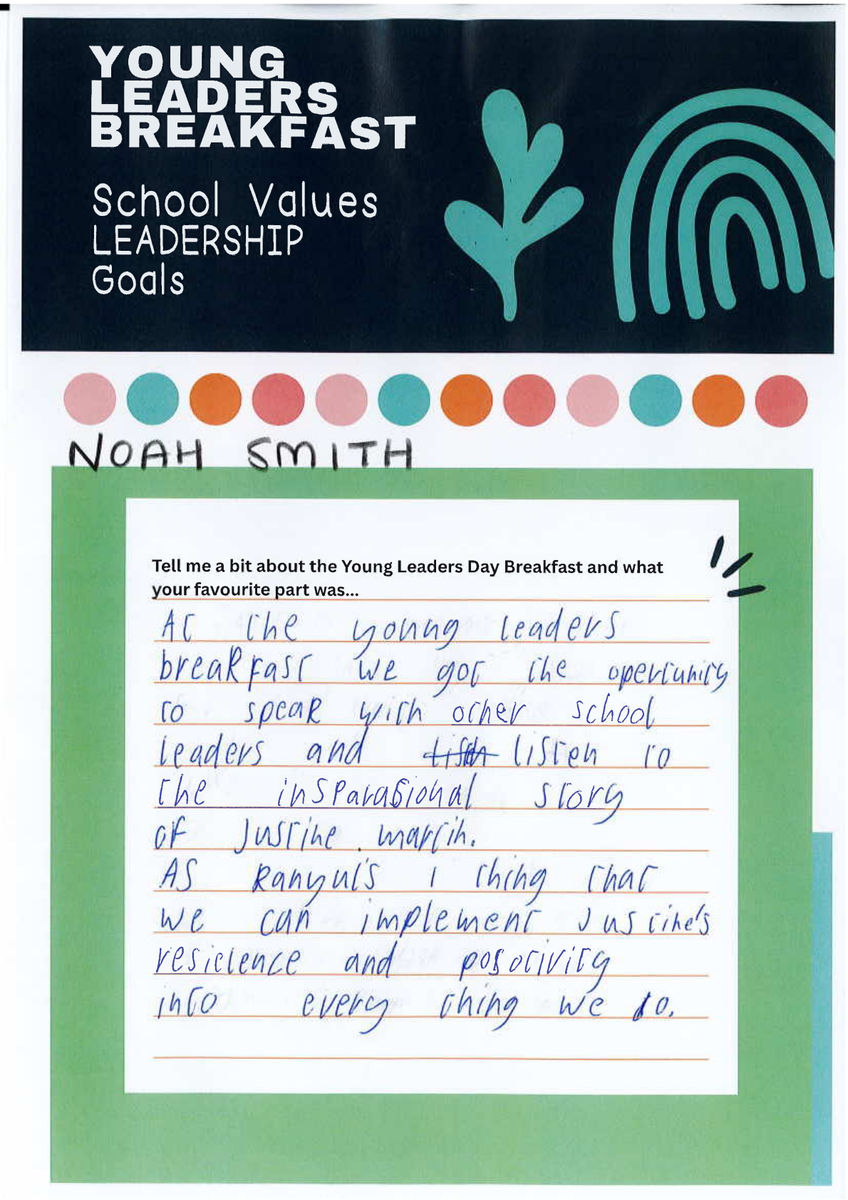 YOUNG
LEADERS
BREAKFAST
School Values
LEADERSHIP
Goals
NOAH SMITH
Tell me a bit about the Young Leaders Day Breakfast and what
your favourite part was...
At the young leaders
breakfast we got the opertunity
to speak with other school
leaders and listen to
the insparasional story
of Justine martin.
As Kanyul's i thing that
we can implement Justine's
resielence and posotivity
into every thing we do.